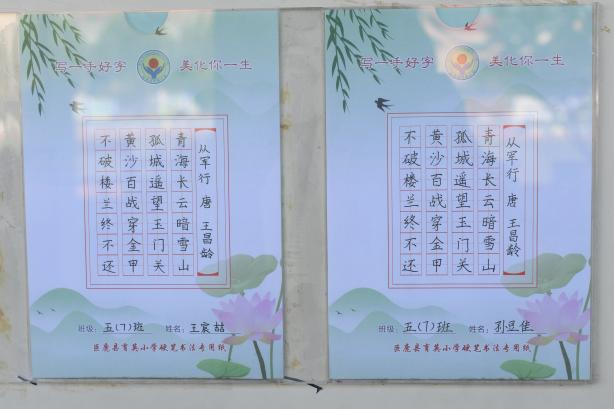 写一手好字 美化你一生
从军行 唐 王昌龄
青海长云暗雪山
孤城遥望玉门关
黄沙百战穿金甲
不破楼兰终不还
班级：五(7)班 姓名：王宸喆
巨鹿县育英小学硬笔书法专用纸
写一手好字 美化你一生
从军行 唐 王昌龄
青海长云暗雪山
孤城遥望玉门关
黄沙百战穿金甲
不破楼兰终不还
班级：五(7)班 姓名：孙昱佳
巨鹿县育英小学硬笔书法专用纸